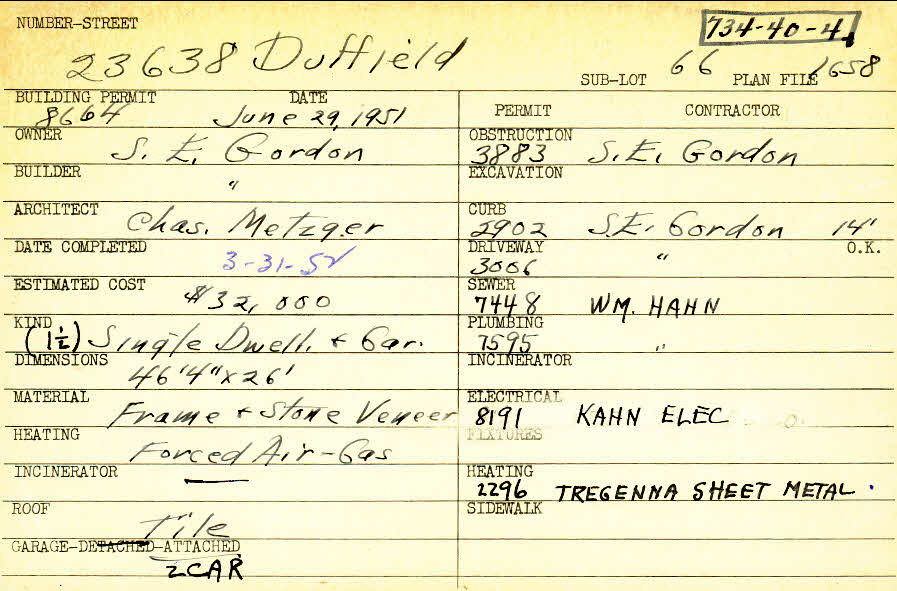 NUMBER-STREET
734-40-4
23638 Duffield
SUB-LOT 66 PLAN FILE 1658
BUILDING PERMIT DATE
8664 June 29, 1951
OWNER
S. E. Gordon
BUILDER
"
ARCHITECT
Chas. Metzger
DATE COMPLETED
3-31-52
ESTIMATED COST
$32,000
KIND
(1½) Single Dwell. + Gar.
DIMENSIONS
46'4" x 26'
MATERIAL
Frame + Stone Veneer
HEATING
Forced Air-Gas
INCINERATOR
—
ROOF
Tile
GARAGE-DETACHED-ATTACHED
2 CAR
PERMIT CONTRACTOR
OBSTRUCTION
3883 S.E. Gordon
EXCAVATION
CURB
2902 S.E. Gordon 14'
DRIVEWAY O.K.
3006 "
SEWER
7448 WM. HAHN
PLUMBING
7595 "
INCINERATOR
ELECTRICAL
8191 KAHN ELEC
FIXTURES
HEATING
2296 TREGENNA SHEET METAL.
SIDEWALK